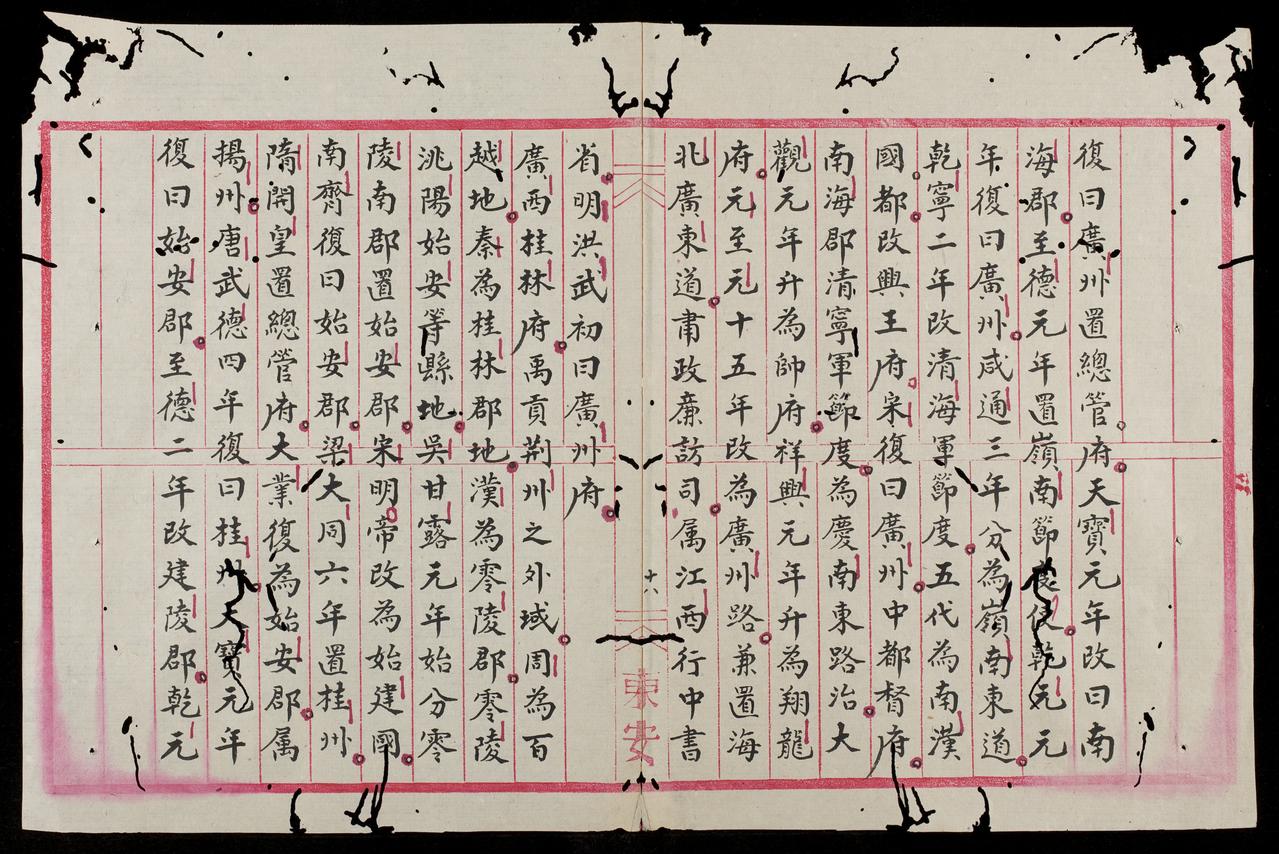 復曰廣州置總管府天寶元年改曰南
海郡至德元年置嶺南節度使乾元元
年復曰廣州咸通三年分為嶺南東道
乾寧二年改清海軍節度五代為南漢
國都改興王府宋復曰廣州中都督府
南海郡清寧軍節度為慶南東路治大
觀元年升為帥府祥興元年升為翔龍
府元至元十五年改為廣州路兼置海
北廣東道肅政廉訪司属江西行中書
十六
東安
省明洪武初曰廣州府
廣西桂林府禹貢荆州之外域周為百
越地秦為桂林郡地漢為零陵郡零陵
洮陽始安等縣地吳甘露元年始分零
陵南郡置始安郡宋明帝改為始建國
南齊復曰始安郡梁大同六年置桂州
隋開皇置總管府大業復為始安郡属
揚州唐武德四年復曰桂州天寶元年
復曰始安郡至德二年改建陵郡乾元